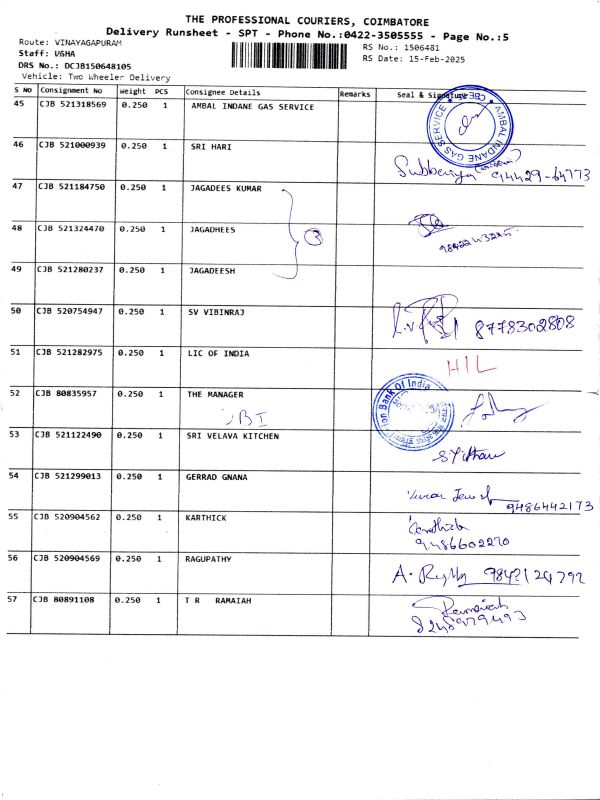 THE PROFESSIONAL COURIERS, COIMBATORE
Delivery Runsheet - SPT - Phone No.:0422-3505555 - Page No.:5
Route: VINAYAGAPURAM
RS No.: 1506481
Staff: USHA
RS Date: 15-Feb-2025
DRS No.: DCJB150648105
Vehicle: Two Wheeler Delivery
S NO Consignment No Weight PCS Consignee Details Remarks Seal & Signature
45 CJB 521318569 0.250 1 AMBAL INDANE GAS SERVICE
AMBAL INDANE GAS SERVICE CBE
46 CJB 521000939 0.250 1 SRI HARI
94429-64773
47 CJB 521184750 0.250 1 JAGADEES KUMAR
48 CJB 521324470 0.250 1 JAGADHEES
3
49 CJB 521280237 0.250 1 JAGADEESH
50 CJB 520754947 0.250 1 SV VIBINRAJ
8778302808
51 CJB 521282975 0.250 1 LIC OF INDIA
HIL
52 CJB 80835957 0.250 1 THE MANAGER
Bank Of India
UBI
53 CJB 521122490 0.250 1 SRI VELAVA KITCHEN
54 CJB 521299013 0.250 1 GERRAD GNANA
9486442173
55 CJB 520904562 0.250 1 KARTHICK
Karthick
9486602220
56 CJB 520904569 0.250 1 RAGUPATHY
57 CJB 80891108 0.250 1 T R RAMAIAH
Ramaiah